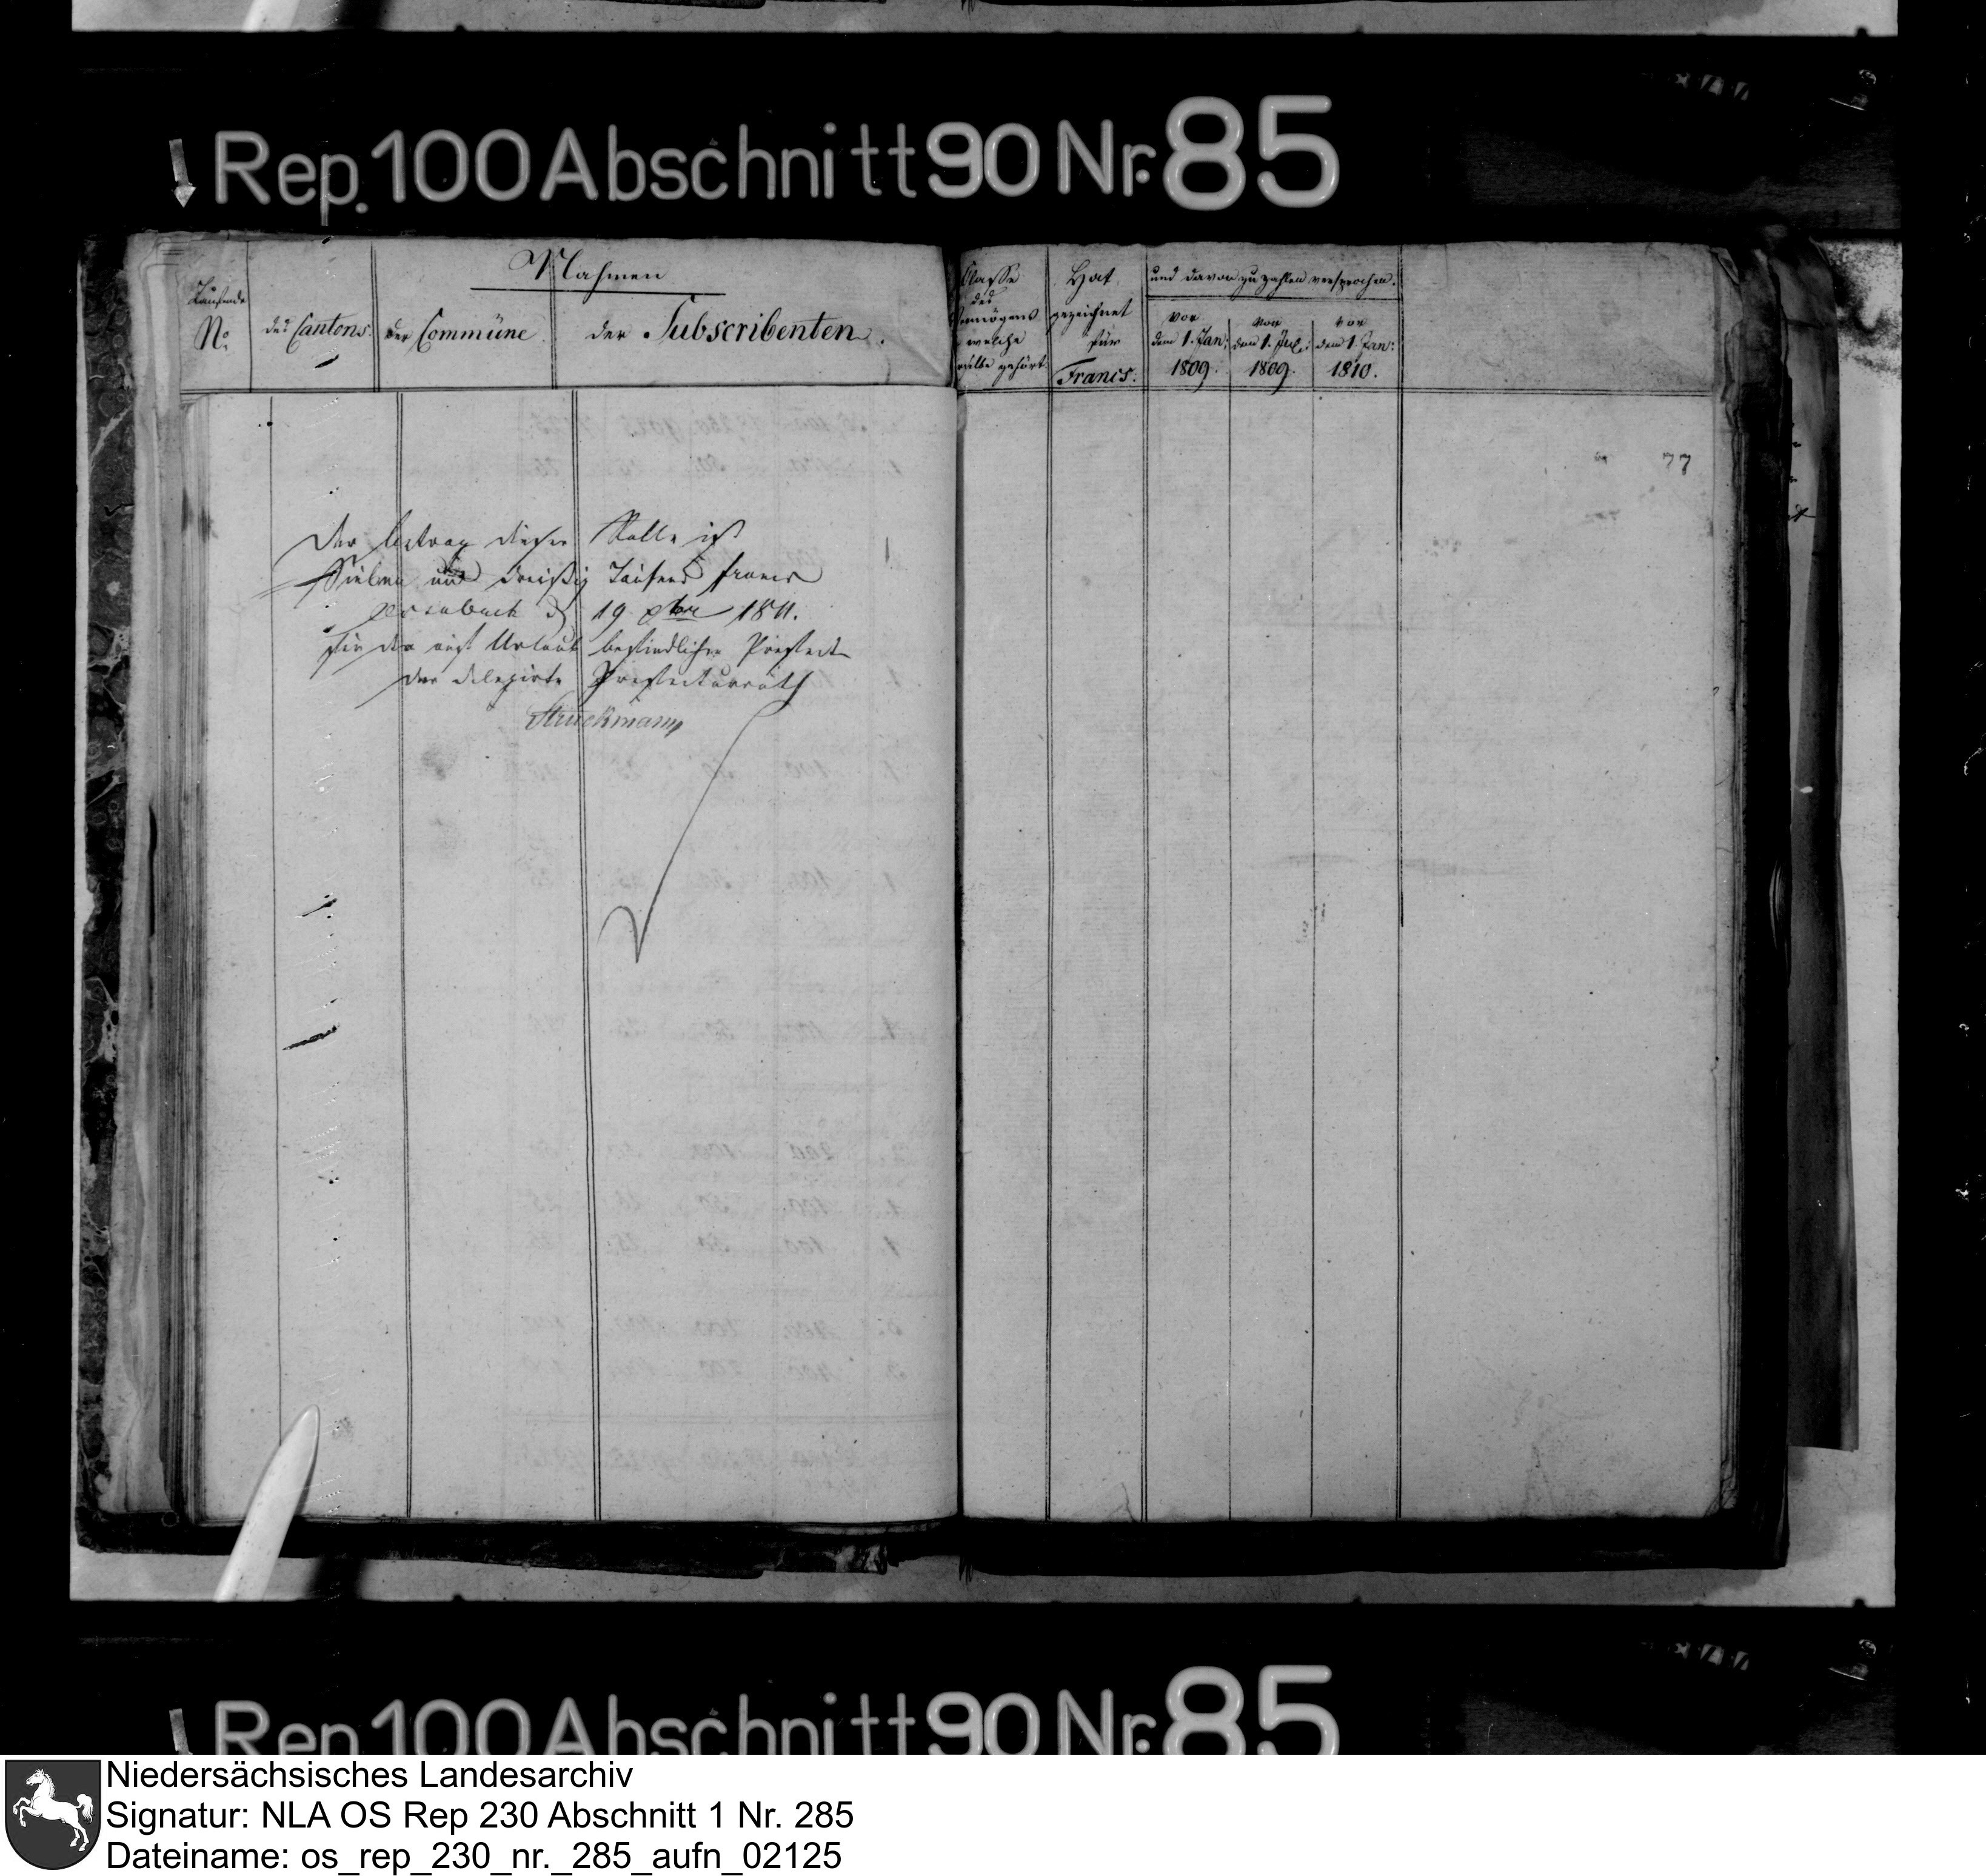 Rep. 100 Abschnitt 90 Nr. 85
Laufende
No
Nahmen
des Cantons.
der Commüne
der Subscribenten.
Classe
des
Vermögens
welche
gehört
Hat
gezeichnet
für
Francs.
und davon zu zahlen versprochen.
vor
dem 1. Jan:
1809.
vor
dem 1. Jul:
1809.
vor
dem 1. Jan:
1810.
77
Der Betrag dieser Rolle ist
Sieben und dreißig Tausend francs
19 1811.
für den auf Urlaub befindlichen Präfect
der delegirte Präfecturrath
Struckmann
Rep. 100 Abschnitt 90 Nr. 85
Niedersächsisches Landesarchiv
Signatur: NLA OS Rep 230 Abschnitt 1 Nr. 285
Dateiname: os_rep_230_nr._285_aufn_02125